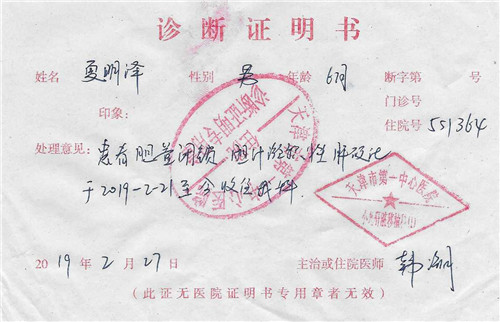 诊断证明书
姓名 夏明泽 性别 男 年龄 6月 断字第 号
门诊号
印象： 住院号 551364
处理意见： 患者胆道闭锁 胆汁淤积性肝硬化
于2019-2-21至今收住我科.
天津市第一中心医院
诊断证明专用章
天津市第一中心医院
2019年2月27日 主治或住院医师 韩
(此证无医院证明书专用章者无效)